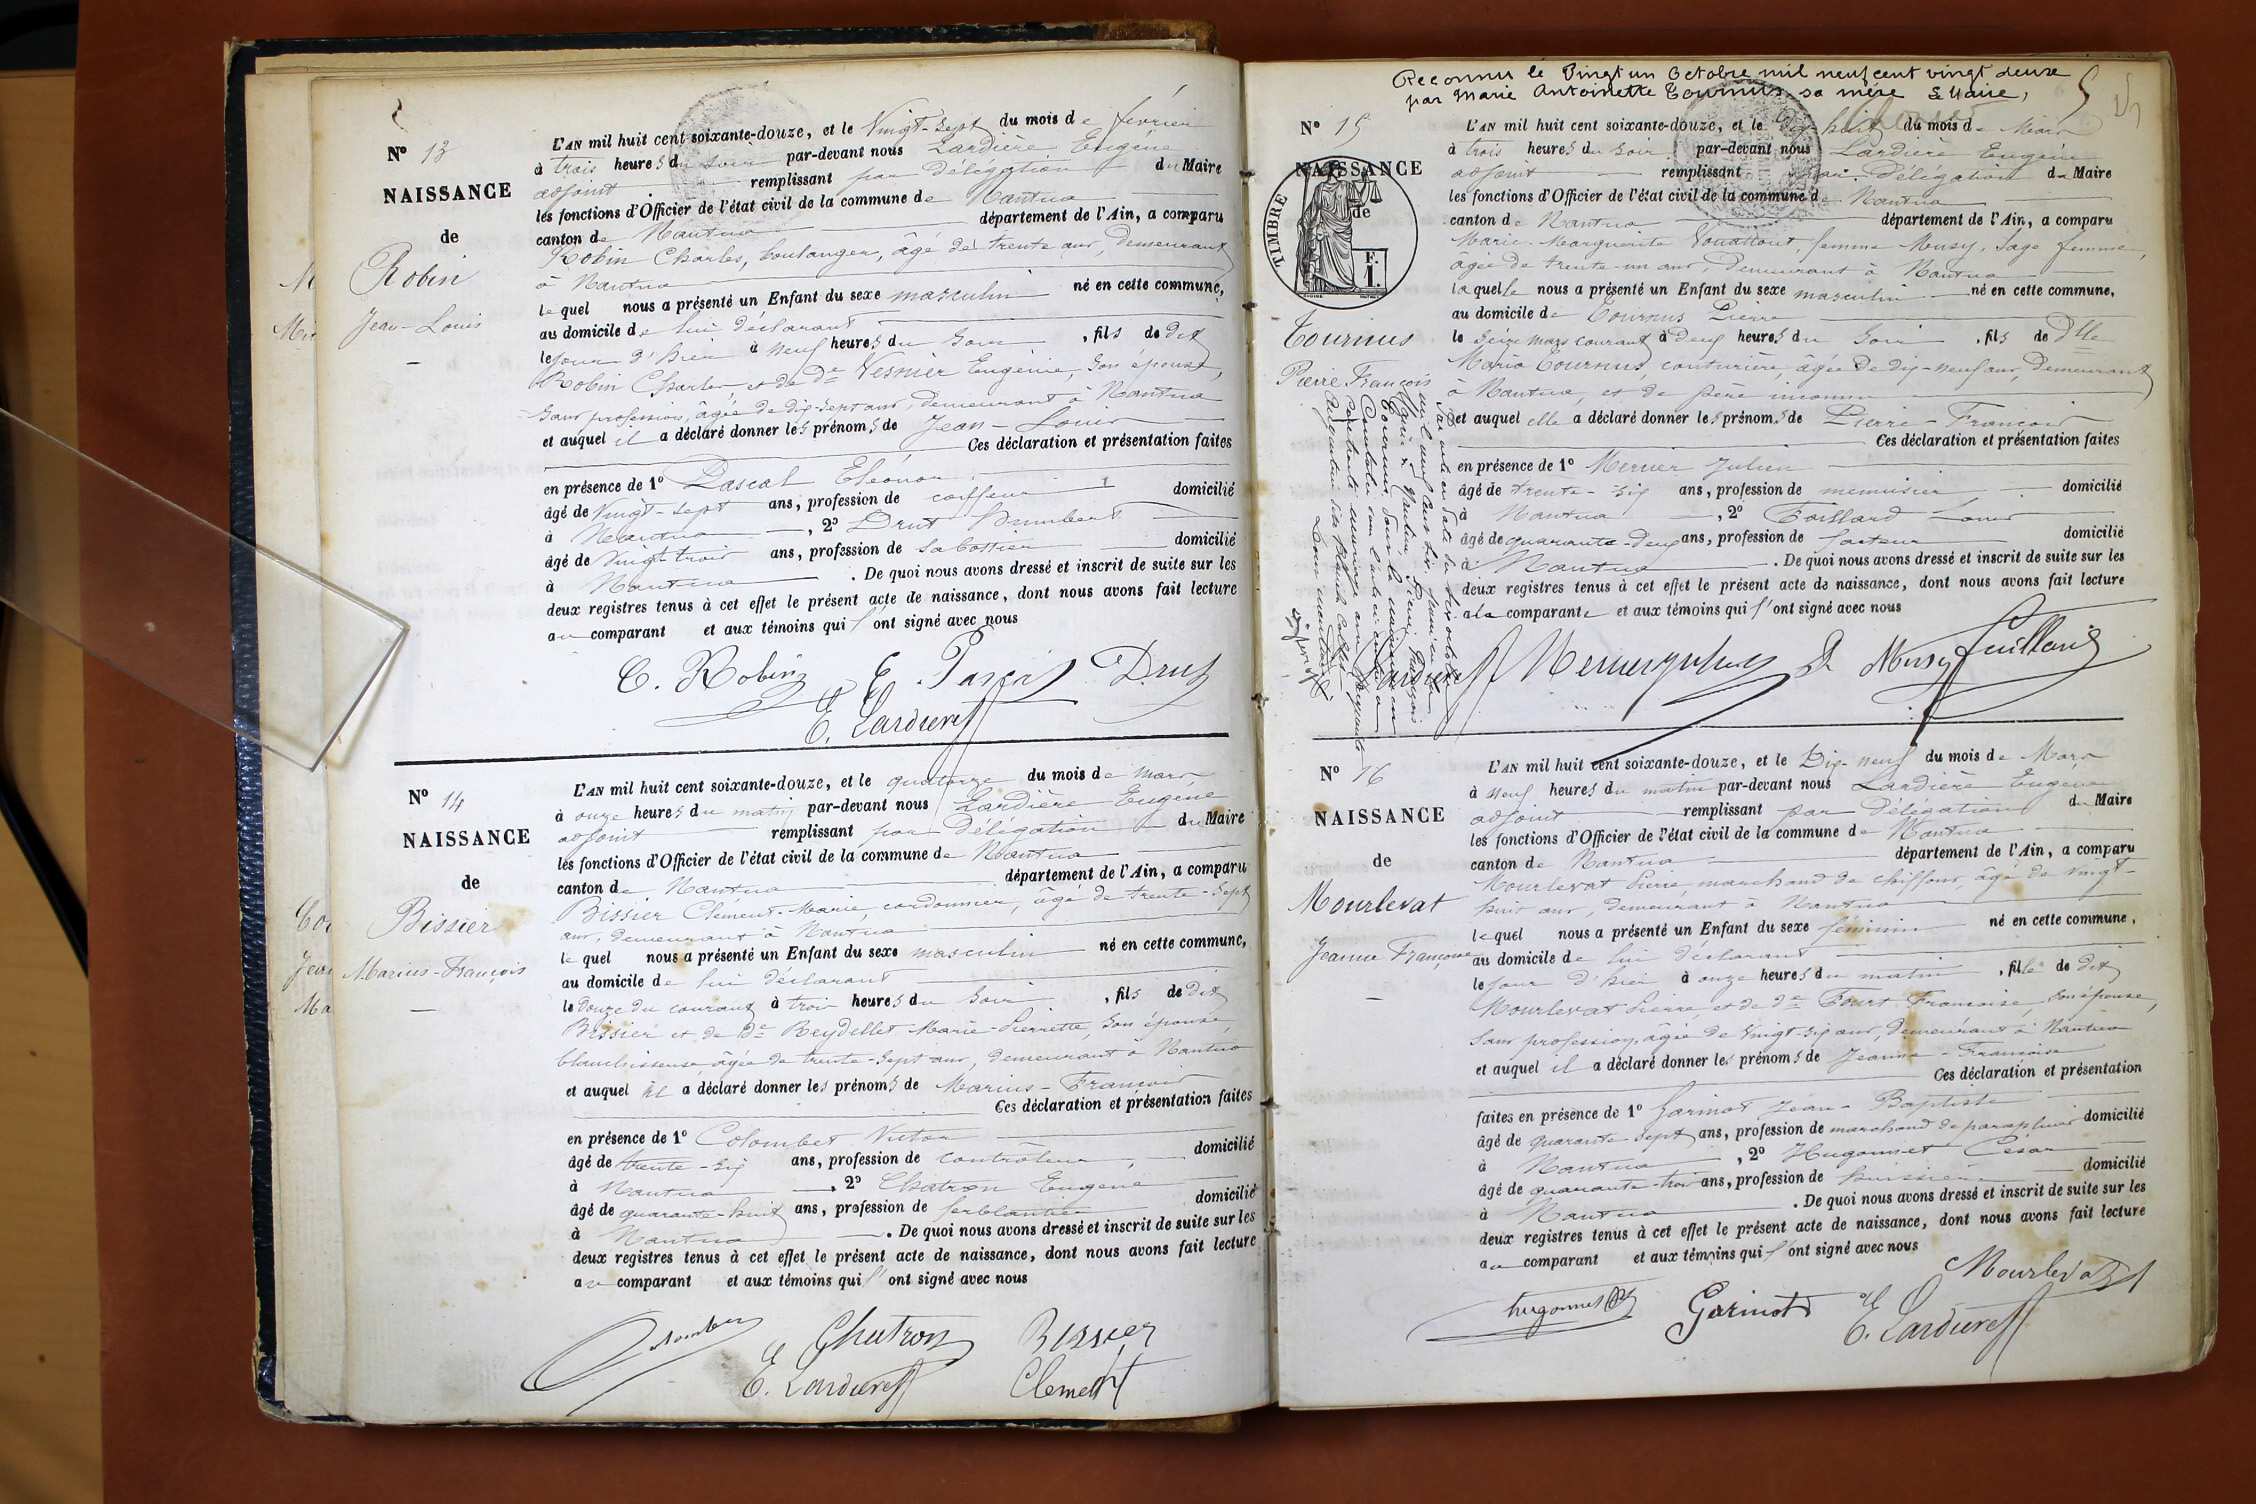 Nº 13
NAISSANCE
de
Robin
Jean-Louis
L'AN mil huit cent soixante-douze, et le vingt-sept du mois de février
à trois heures du soir par-devant nous Lardière Eugène
adjoint remplissant par délégation du Maire
les fonctions d'Officier de l'état civil de la commune de Nantua
canton de Nantua département de l'Ain, a comparu
Robin Charles, boulanger, âgé de trente ans, demeurant
à Nantua
lequel nous a présenté un Enfant du sexe masculin né en cette commune,
au domicile de lui déclarant
le jour d'hier à neuf heures du soir, fils de dit
Robin Charles et de De Vesnier Eugénie, son épouse,
sans profession, âgée de dix-sept ans, demeurant à Nantua
et auquel il a déclaré donner les prénoms de Jean-Louis
Ces déclaration et présentation faites
en présence de 1º Pascal Eléonor
âgé de vingt-sept ans, profession de coiffeur domicilié
à Nantua, 2º Drut Humbert
âgé de vingt-trois ans, profession de sabottier domicilié
à Nantua. De quoi nous avons dressé et inscrit de suite sur les
deux registres tenus à cet effet le présent acte de naissance, dont nous avons fait lecture
au comparant et aux témoins qui l'ont signé avec nous
C. Robin E. Pascal Drut
E. Lardière
Nº 14
NAISSANCE
de
Bissier
Marius-François
L'AN mil huit cent soixante-douze, et le quatorze du mois de mars
à onze heures du matin par-devant nous Lardière Eugène
adjoint remplissant par délégation du Maire
les fonctions d'Officier de l'état civil de la commune de Nantua
canton de Nantua département de l'Ain, a comparu
Bissier Clément-Marie, cordonnier, âgé de trente-sept
ans, demeurant à Nantua
lequel nous a présenté un Enfant du sexe masculin né en cette commune,
au domicile de lui déclarant
le douze du courant à trois heures du soir, fils de dit
Bissier et de De Reydellet Marie-Pierrette, son épouse,
blanchisseuse âgée de trente-sept ans, demeurant à Nantua
et auquel il a déclaré donner les prénoms de Marius-François
Ces déclaration et présentation faites
en présence de 1º Colombet Victor
âgé de trente-six ans, profession de contrôleur, domicilié
à Nantua, 2º Chatron Eugène
âgé de quarante-huit ans, profession de ferblantier domicilié
à Nantua. De quoi nous avons dressé et inscrit de suite sur les
deux registres tenus à cet effet le présent acte de naissance, dont nous avons fait lecture
au comparant et aux témoins qui l'ont signé avec nous
Colombet Chatron Bissier
E. Lardière Clement
Reconnu le vingt un Octobre mil neuf cent vingt deuse
par Marie Antoinette Tournus sa mère
5
Nº 15
NAISSANCE
de
TIMBRE
F.
1.
Tournus
Pierre François
L'AN mil huit cent soixante-douze, et le dix-huit du mois de Mars
à trois heures du soir par-devant nous Lardière Eugène
adjoint remplissant par délégation du Maire
les fonctions d'Officier de l'état civil de la commune de Nantua
canton de Nantua département de l'Ain, a comparu
Marie-Marguerite femme Musy, sage femme,
âgée de trente-un ans, demeurant à Nantua
laquelle nous a présenté un Enfant du sexe masculin né en cette commune,
au domicile de Tournus Pierre
le seize mars courant à deux heures du soir, fils de Dlle
Maria Tournus, couturière, âgée de dix-neuf ans, demeurant
à Nantua, et de père inconnu
et auquel elle a déclaré donner les prénoms de Pierre-François
Ces déclaration et présentation faites
en présence de 1º Mercier Julien
âgé de trente-six ans, profession de menuisier domicilié
à Nantua, 2º Louis
âgé de quarante-deux ans, profession de facteur domicilié
à Nantua. De quoi nous avons dressé et inscrit de suite sur les
deux registres tenus à cet effet le présent acte de naissance, dont nous avons fait lecture
à la comparante et aux témoins qui l'ont signé avec nous
Musy
Nº 16
NAISSANCE
de
Mourlevat
Jeanne Françoise
L'AN mil huit cent soixante-douze, et le Dix-neuf du mois de Mars
à neuf heures du matin par-devant nous Lardière Eugène
adjoint remplissant par délégation du Maire
les fonctions d'Officier de l'état civil de la commune de Nantua
canton de Nantua département de l'Ain, a comparu
Mourlevat Pierre, marchand de chiffons, âgé de vingt-
huit ans, demeurant à Nantua
lequel nous a présenté un Enfant du sexe féminin né en cette commune,
au domicile de lui déclarant
le jour d'hier à onze heures du matin, fille de dit
Mourlevat Pierre et de De Françoise, son épouse,
sans profession, âgée de vingt-six ans, demeurant à Nantua
et auquel il a déclaré donner les prénoms de Jeanne-Françoise
Ces déclaration et présentation
faites en présence de 1º Garinot Jean-Baptiste
âgé de quarante-sept ans, profession de marchand de parapluies domicilié
à Nantua, 2º Hugonnet César
âgé de quarante-trois ans, profession de huissier domicilié
à Nantua. De quoi nous avons dressé et inscrit de suite sur les
deux registres tenus à cet effet le présent acte de naissance, dont nous avons fait lecture
au comparant et aux témoins qui l'ont signé avec nous
Mourlevat
Hugonnet Garinot E. Lardière